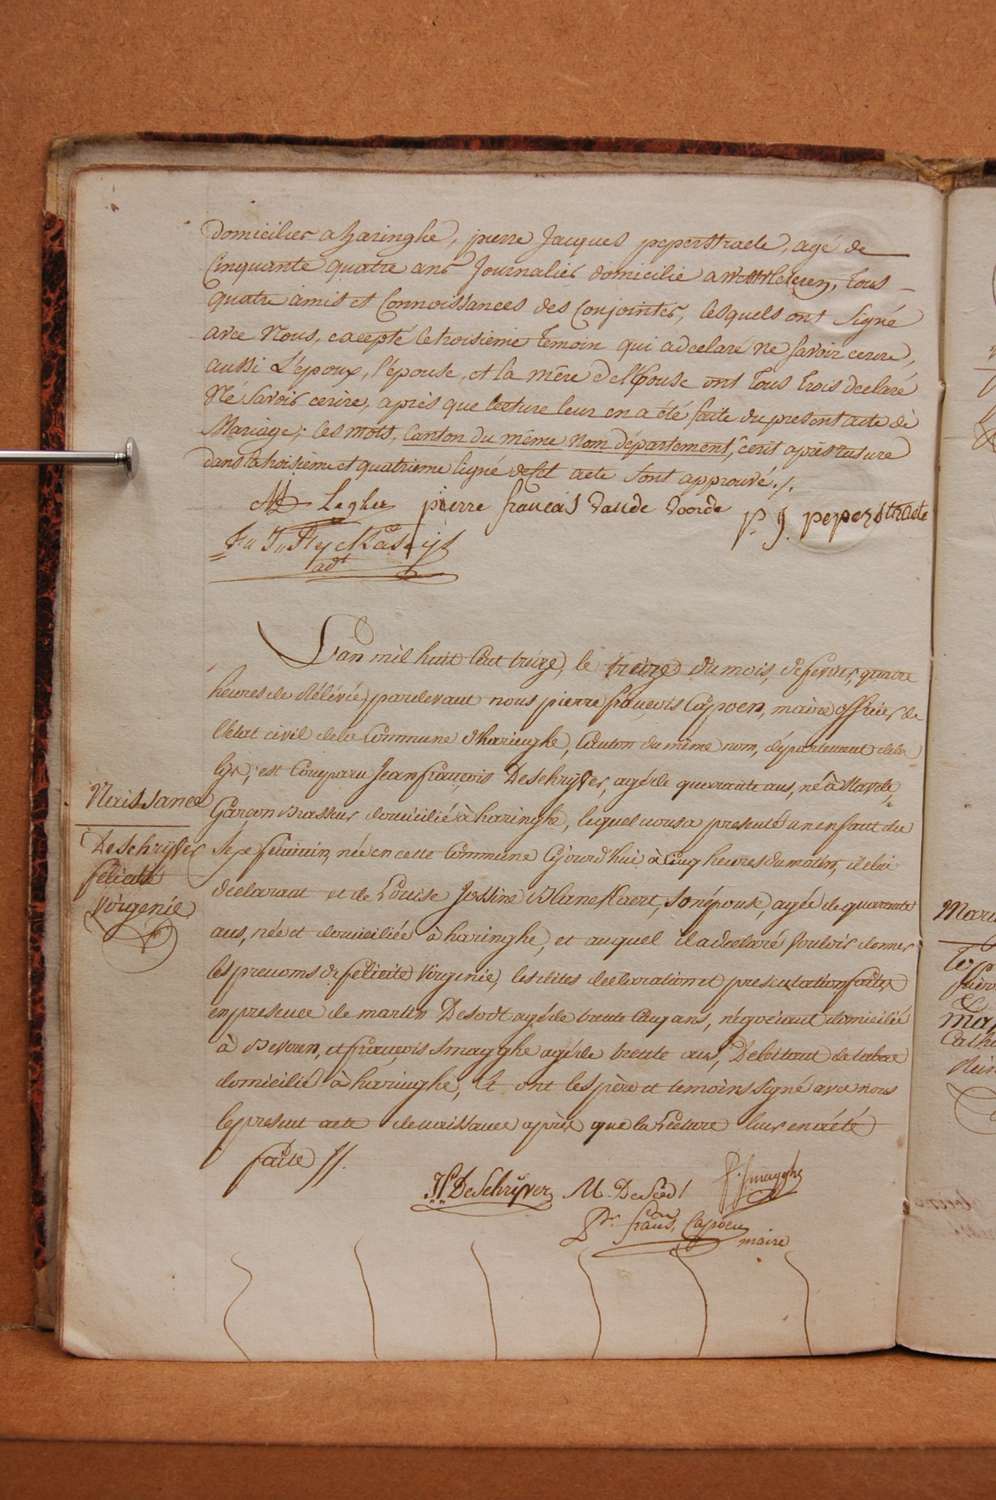 domicilier a haringhe, pierre Jacques peperstraete, agé de
Cinquante quatre ans Journalier domicilié a tous
quatre amis et Connoissances des Conjointes, lesquels ont signé
avec Nous, excepté le troisieme temoin qui a declaré ne savoir ecrire,
aussi L'époux, l'épouse, et la mère de l'Epouse ont tous trois declaré
Né savoir ecrire, après que lecture leur en a été faite du present acte de
Mariage; les mots, Canton du même nom département, écrit après rature
dans le troisieme et quatrième ligné acte sont approuvé ./.
Leghu pierre francois Vande Voorde P. J. peperstraete
F. J. Ryckaseys
adt
L'an mil huit Cent treize, le treize du mois, de fevrier, quatre
heures de rélévée, pardevant nous pierre françois Capoen, maire officier de
l'état civil de la Commune d'haringhe, Canton du même nom, département de la
lys, est Comparu Jean françois DeSchryver, agé de quarante ans, né à Stavele,
Garçon Brasseur domicilié à haringhe, lequel nous a presenté un enfant du
Sexe féminin, née en cette Commune Cejourd'hui à Cinq heures du matin, de lui
declarant et de Louise Jossine Blanckaert, son épouse, agée de quarante
ans, née et domiciliée à haringhe, et auquel il a declaré vouloir donner
les prenoms de félicité Virginie, les dites declaration et presentation faites
en presence de martin Desodt agé de trente Cinq ans, négociant domicilié
à Beveren, et françois Smagghe agé de trente ans, Debittant de tabac
domicilié à haringhe, Et ont les père et temoins signé avec nous
le present acte de naissance après que la Lecture leur en a été
faite //.
Naissance
DeSchryver
félicité
Virgenie
JF DeSchryver M. DeSodt f. Smagghe
Pre. franc. Capoen
maire
Mari